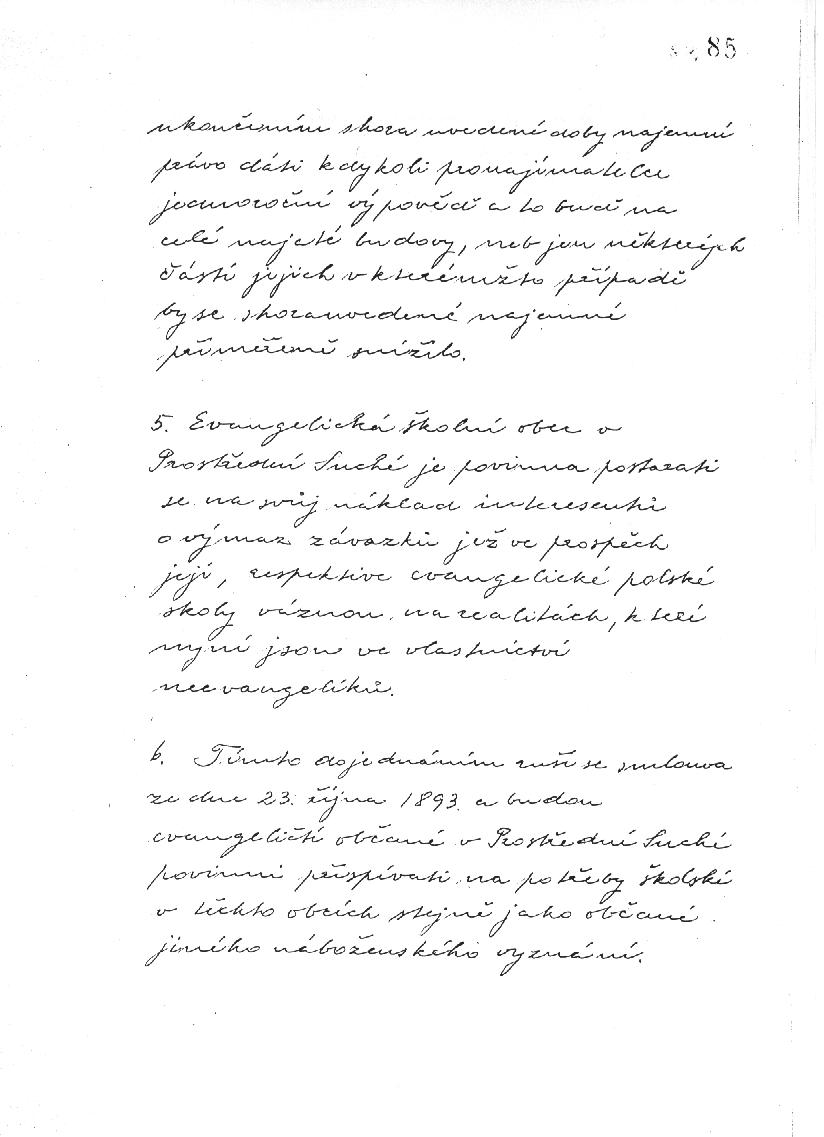 85
ukončením shora uvedené doby najemní
právo dáti kdykoli pronajímatelce
jednoroční výpověď a to buď na
celé najeté budovy, neb jen některých
částí jejich v kterémžto případě
by se shorauvedené najemné
přiměřeně snížilo.
5. Evangelická školní obec v
Prostřední Suché je povinna postarati
se na svůj náklad interesenti
o výmaz závazků jež ve prospěch
její, respektive evangelické polské
školy váznou na realitách, kteří
nyní jsou ve vlastnictví
neevangelíků.
6. Tímto dojednáním ruší se smlouva
ze dne 23. října 1893 a budou
evangeličtí občané v Prostřední Suché
povinni přispívati na potřeby školské
v těchto obcích stejně jako občané
jiného náboženského vyznání.